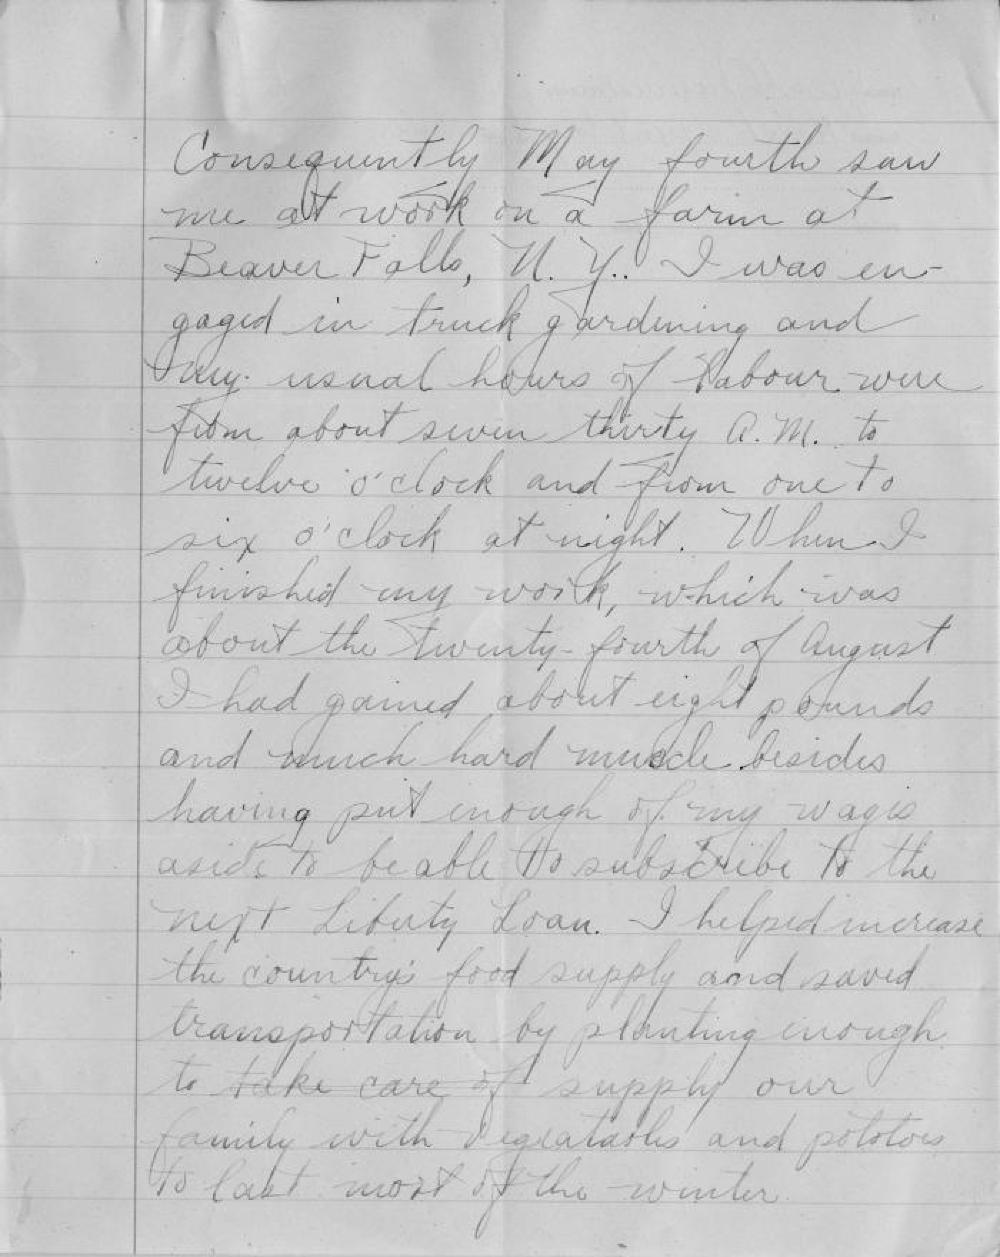 Consequently May fourth saw
me at work on a farm at
Beaver Falls, N. Y.. I was en-
gaged in truck gardening and
my usual hours of labour were
from about seven thirty A.M. to
twelve o'clock and from one to
six o'clock at night. When I
finished my work, which was
about the twenty-fourth of August
I had gained about eight pounds
and much hard muscle besides
having put enough of my wages
aside to be able to subscribe to the
next Liberty Loan. I helped increase
the country's food supply and saved
transportation by planting enough
to take care of supply our
family with vegeatables and pototoes
to last most of the winter.